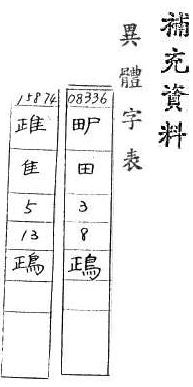 補充資料
異體字表
08336
田
3
8
鴊
15874
隹
5
13
鴊